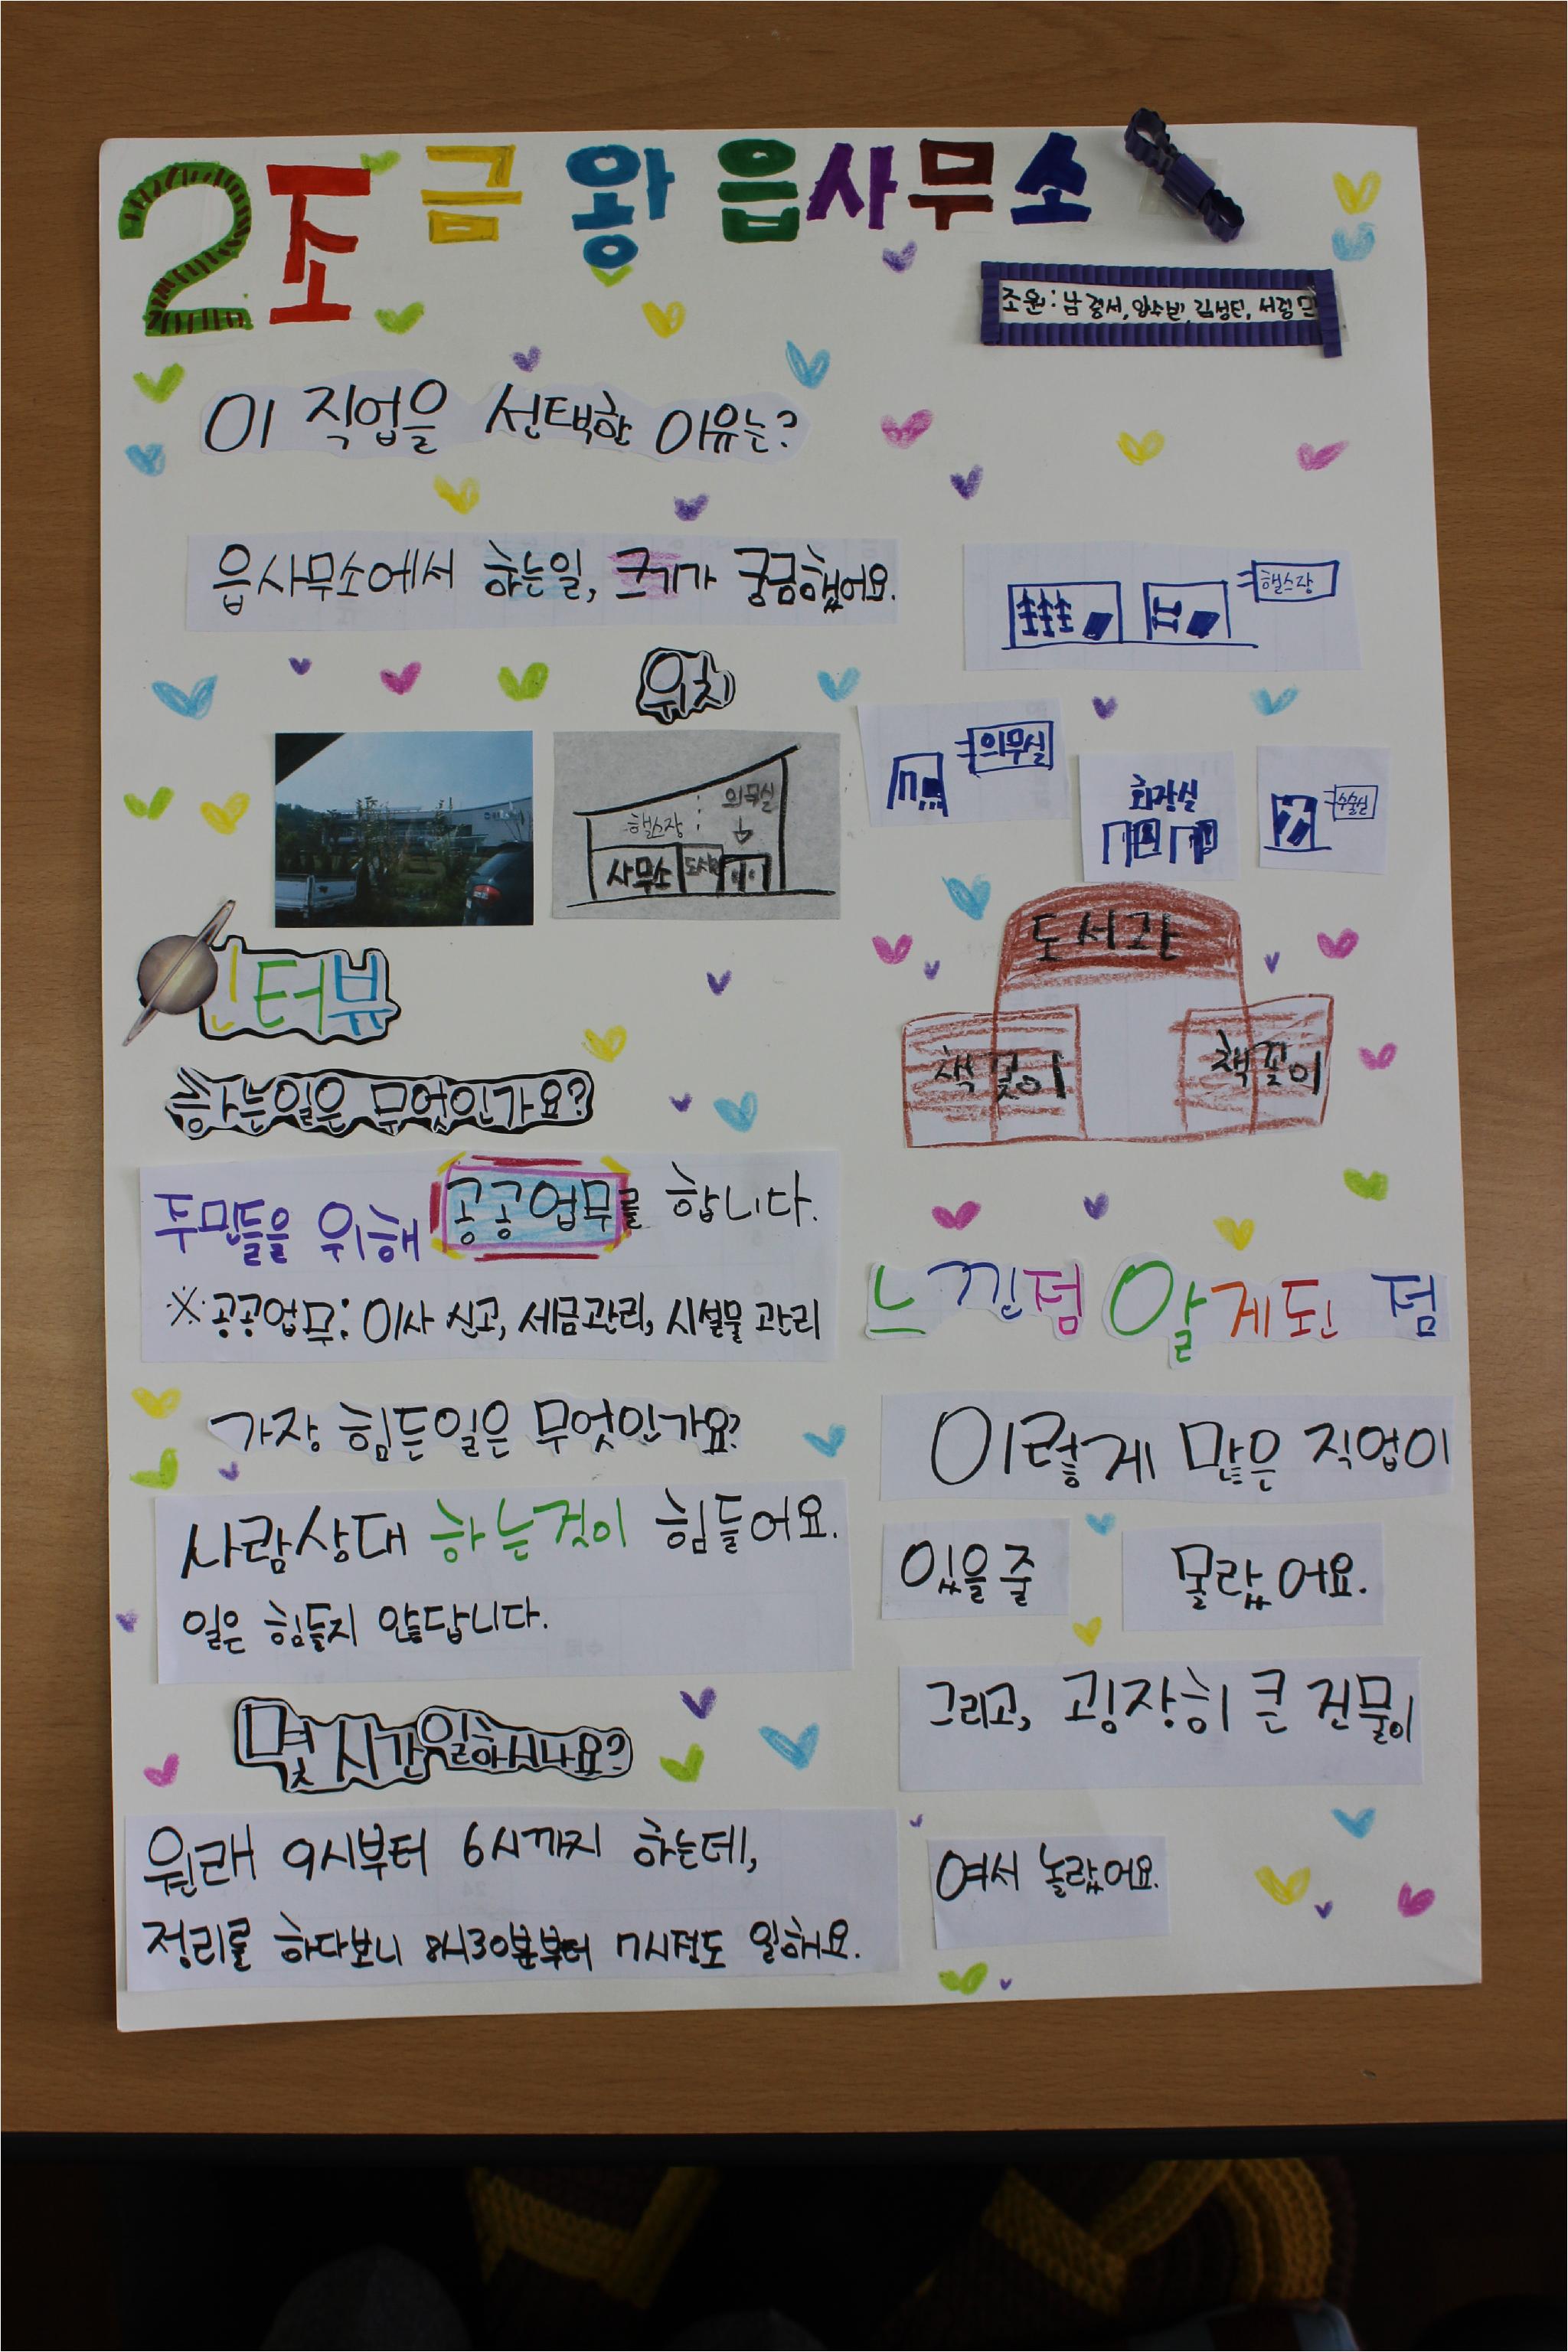 2조 금왕 읍사무소
조원: 남경서, 김성민, 서정민
이 직업을 선택한 이유는?
읍사무소에서 하는일, 크기가 궁금했어요.
헬스장
위치
의무실
화장실
수술실
헬스장
의무실
사무소
도서관
도서관
책꽂이
책꽂이
인터뷰
하는일은 무엇인가요?
주민들을 위해 공공업무를 합니다.
※공공업무: 이사 신고, 세금관리, 시설물 관리
가장 힘든일은 무엇인가요?
사람상대 하는것이 힘들어요.
일은 힘들지 않답니다.
몇 시간일하시나요?
원래 9시부터 6시까지 하는데,
정리를 하다보니 8시30분부터 7시정도 일해요.
느낀점 알게된 점
이렇게 많은 직업이
있을 줄 몰랐어요.
그리고, 굉장히 큰 건물이
여서 놀랐어요.